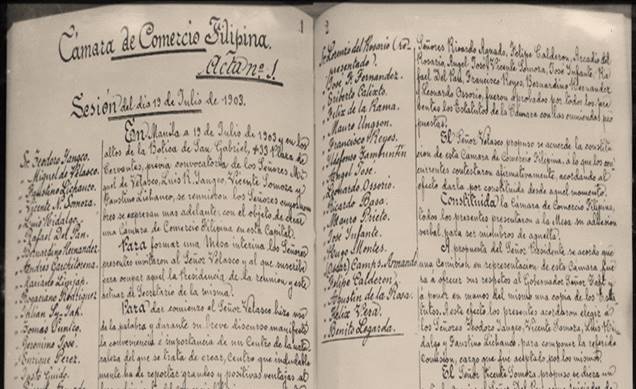 1
Cámara de Comercio Filipina.
Acta nº 1.
Sesión del día 19 de Julio de 1903.
Sr. Teodoro Yangco.
Miguel de Velasco.
Faustino Lichauco.
Vicente Somoza.
Luis Hidalgo.
Rafael Del Pan.
Bernardino Hernandez.
Andres Garchitorena.
Mariano Limjap.
Telesforo
Rodriguez
Julian
Tomas Sunico.
Geronimo Jose.
Enrique Perez.
Justo Guido.
En Manila a 19 de Julio de 1903 y en los
altos de la Botica de San Gabriel, #33 Plaza de
Cervantes, previa convocatoria de los Señores Mi-
guel de Velasco, Luis R. Yangco, Vicente Somoza y
Faustino Lichauco, se reunieron los Señores cuyos nom-
bres se expresan mas adelante, con el objeto de crear
una Cámara de Comercio Filipina en esta Capital.
Para formar una Mesa interina los Señores
presentes invitaron al Señor Velasco y al que suscribe
para ocupar aquel la Presidencia de la reunion, y este
actuar de Secretario de la misma.
Para dar comienzo el Señor Velasco hizo uso
de la palabra y durante su breve discurso manifestó
la conveniencia é importancia de un Centro de la natu-
raleza del que se trata de crear, Centro que indudable-
mente ha de reportar grandes y positivas ventajas al
2
Sr. del Rosario (re-
presentado).
José F. Fernandez.
Eriberto Calixto.
Felix de la Rama.
Mauro Ungson.
Francisco Reyes.
Ildefonso Tambunting
Angel José.
Leonardo Ossorio.
Ricardo Rosa.
Mauro Prieto.
José Infante.
Hugo Montes.
Oscar Camps, Armando
Felipe Calderon.
Agustin de la Rosa.
Felix Vera.
Benito Legarda.
Señores Ricardo Aguado, Felipe Calderon, Arcadio del
Rosario, Angel José, Vicente Somoza, José Infante, Ra-
fael Del Pan, Francisco Reyes, Bernardino Hernandez
y Leonardo Ossorio, fueron aprobados por todos los pre-
sentes los Estatutos de la Cámara con las enmiendas pro-
puestas.
El Señor Velasco propuso se acuerde la constitu-
cion de esta Cámara de Comercio Filipina, á lo que los con-
currentes contestaron afirmativamente, acordando al
efecto darla por constituida desde aquel momento.
Constituida la Cámara de Comercio Filipina,
todos los presentes presentaron á la Mesa su adhesion
verbal, para ser miembros de aquella.
A propuesta del Señor Presidente se acordó que
una Comision en representacion de esta Cámara fue-
ra á ofrecer sus respetos al Gobernador Señor Taft y
á poner en manos del mismo una copia de los Esta-
tutos. A este efecto, los presentes acordaron elegir á
los Señores Teodoro Yangco, Vicente Somoza, Luis Hi-
dalgo y Faustino Lichauco, para componer la referida
Comision, cargo que fue aceptado por los mismos.
El Señor Vicente Somoza propuso se diera un